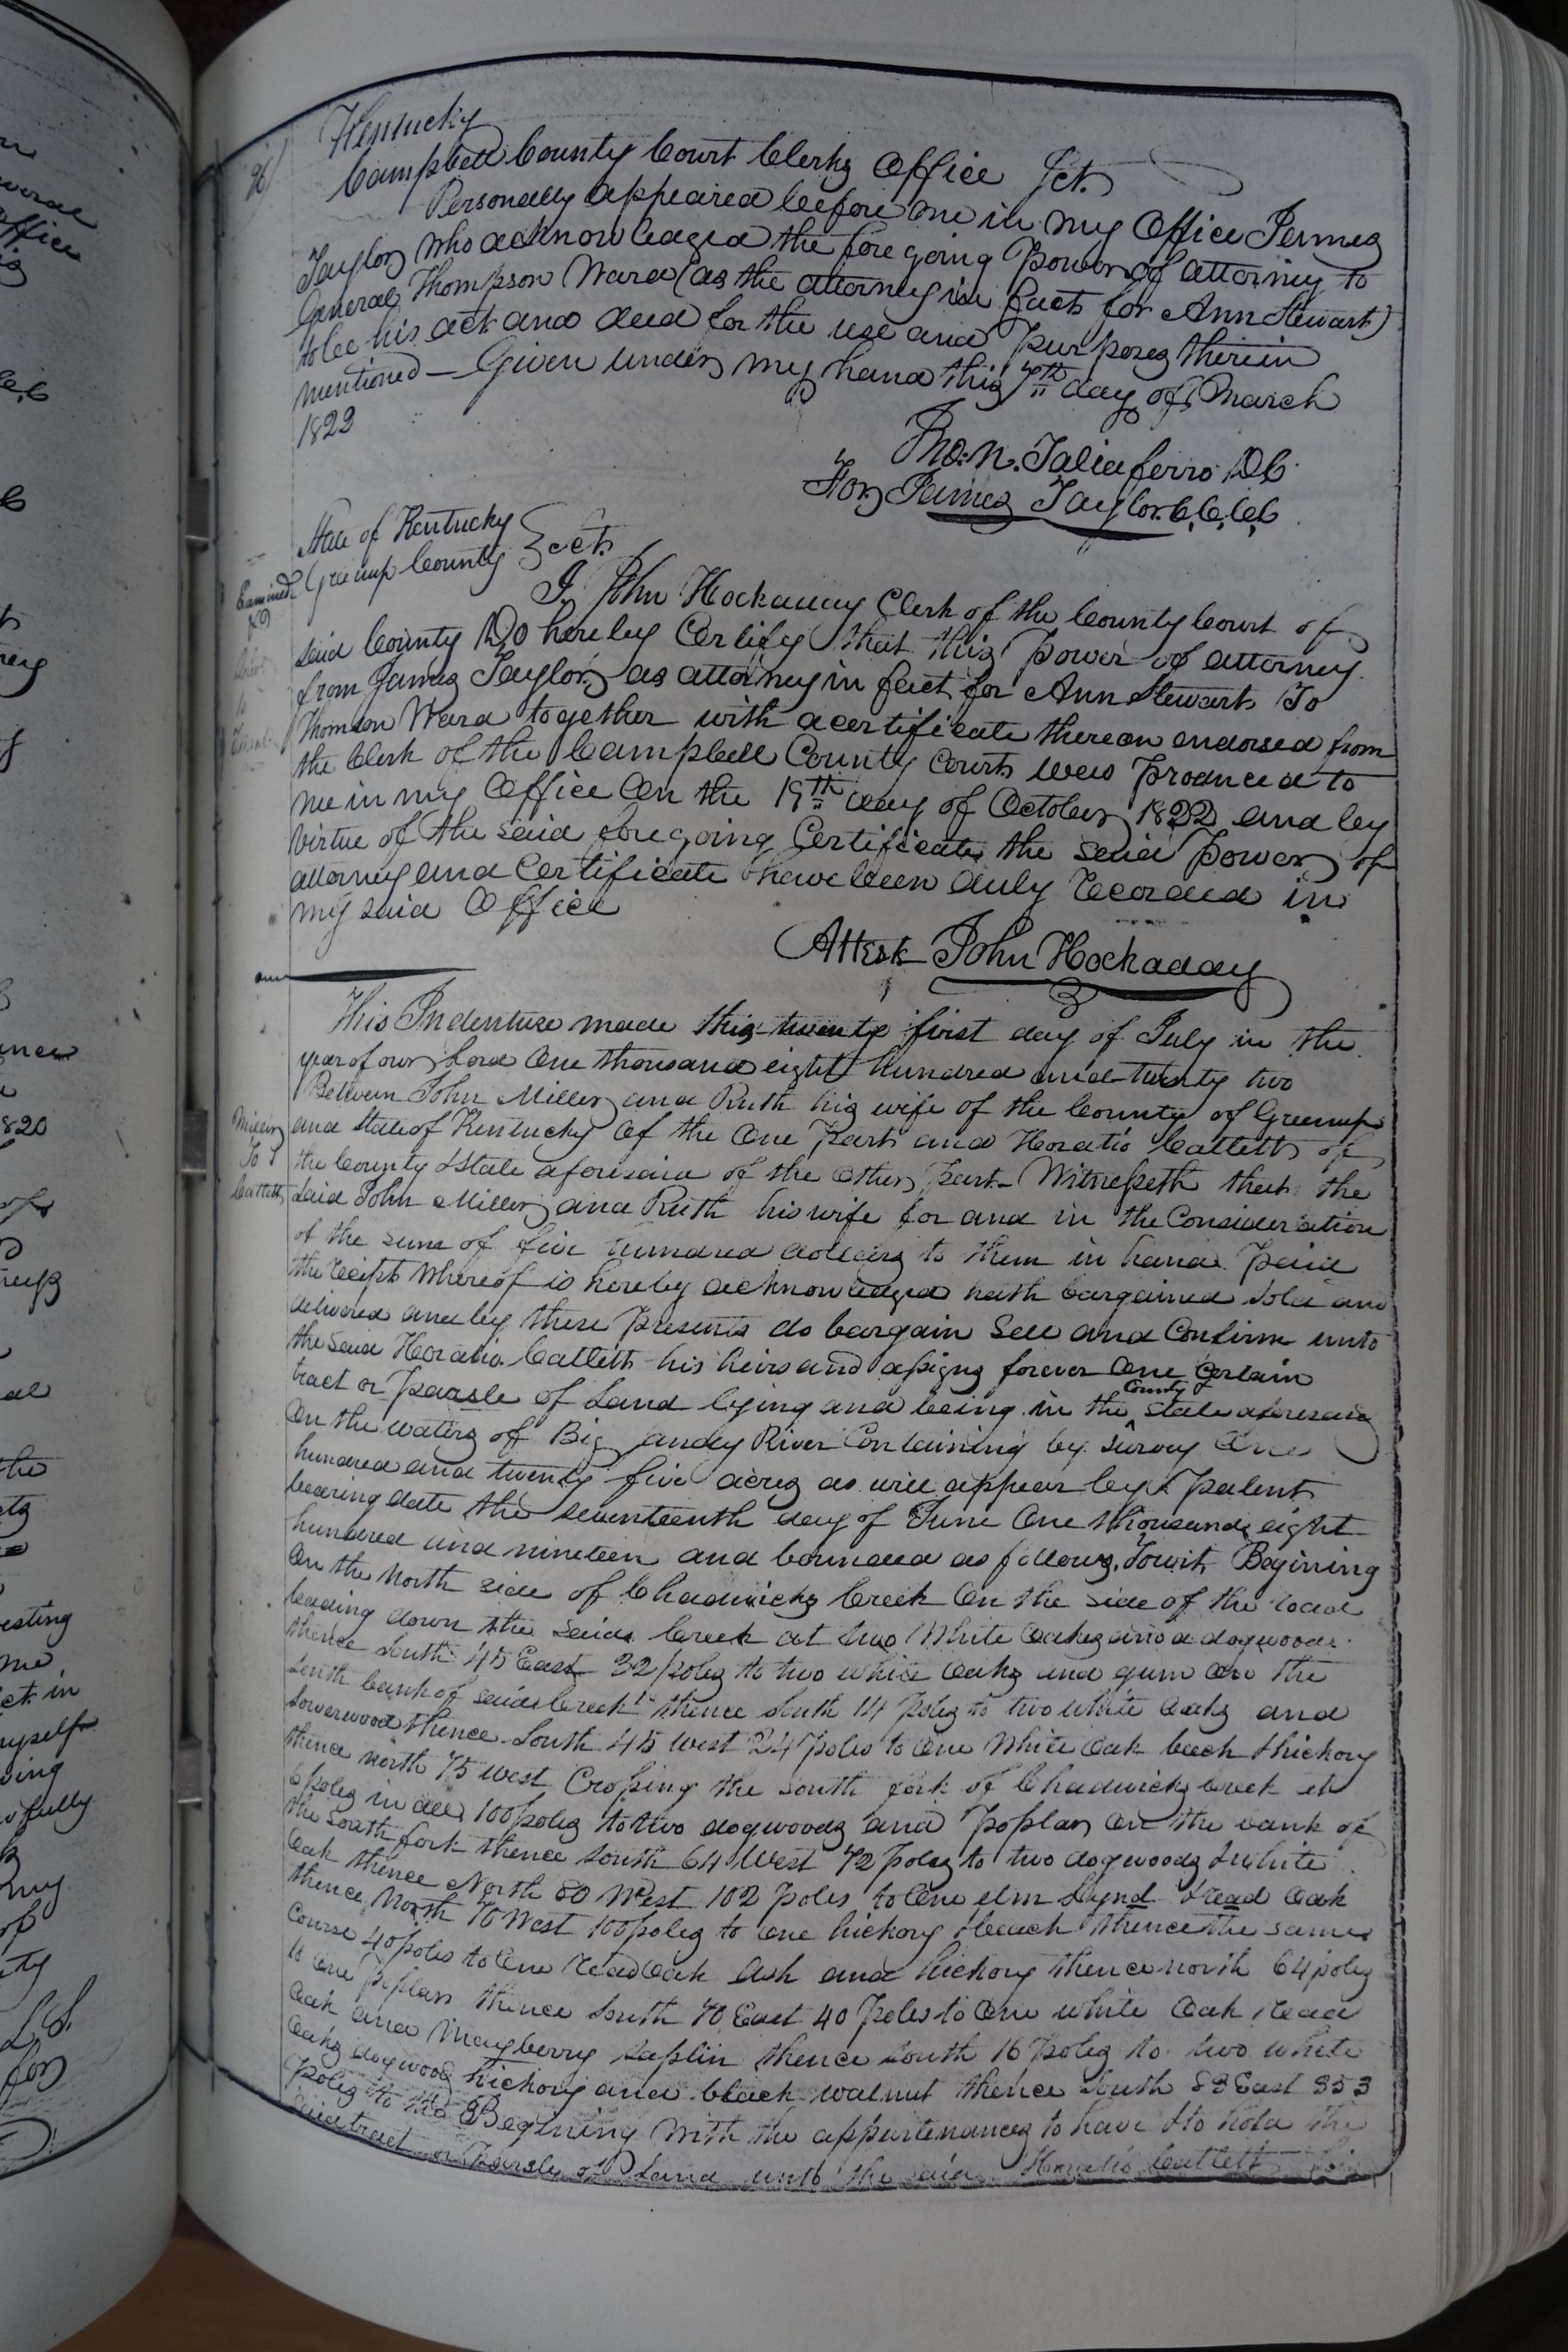 Kentucky
Campbell County Court Clerks Office Sct.
Personally appeared before me in my Office James
Taylor who acknowledged the foregoing Power of attorney to
General Thompson Ward (as the attorney in fact for Ann Stewart)
to be his act and deed for the use and Purposes therein
mentioned — Given under my hand this 7th day of March
1822
Tho. N. Taliaferro DC
For James Taylor C,C,C,C
State of Kentucky
Greenup County } Sct.
Examined
I. John Hockaday Clerk of the County Court of
said County Do hereby Certify that this Power of attorney
from James Taylor as attorney in fact for Ann Stewart To
Thomson Ward together with a certificate thereon endorsed from
the Clerk of the Campbell County Court were produced to
me in my Office On the 19th day of October 1822 and by
virtue of the said foregoing Certificate the said Power of
attorney and Certificate have been duly Recorded in
my said Office
Attest John Hockaday
This Indenture made this twenty first day of July in the
year of our Lord One thousand eight hundred and twenty two
Between John Miller and Ruth his wife of the County of Greenup
Miller
To
Catlett
and State of Kentucky of the One Part and Horatio Catlett of
the County & State aforesaid of the Other Part— Witnesseth that the
said John Miller and Ruth his wife for and in the Consideration
of the sum of five hundred dollars to them in hand paid
the receipt whereof is hereby acknowledged hath bargained sold and
delivered and by these Presents do bargain Sell and Confirm unto
the said Horatio Catlett his heirs and assigns forever One Certain
tract or Parsle of Land lying and being in the County & state aforesaid
On the waters of Big Sandy River Containing by Survey One
hundred and twenty five acres as will appear by Patent
bearing date the seventeenth day of June One thousand eight
hundred and nineteen and bounded as follows, Towit, Begining
On the North side of Chadwicks Creek On the side of the road
leading down the said Creek at two White Oaks and a dogwood
thence South 45 East 32 poles to two white Oaks and gum on the
south bank of said Creek thence South 14 poles to two white Oaks and
Sowerwood thence South 45 West 24 poles to One White Oak beech & hickory
thence north 75 west Crossing the south fork of Chadwicks Creek at
6 poles in all 100 poles to two dogwoods and Poplar On the bank of
the South fork thence South 64 West 72 poles to two dogwoods & White
Oak thence North 80 West 102 Poles to One elm Lynd & read Oak
thence North 70 West 100 poles to One hickory & beach thence the same
Course 40 poles to One Read Oak Ash and hickory thence north 64 poles
to One Poplar thence South 70 East 40 Poles to One white Oak Read
Oak and Mayberry Saplin thence South 16 Poles to two White
Oaks dogwood hickory and black walnut thence South 83 East 353
Poles to the Begining With the appurtenances to have & to hold the
said tract or Parsle of Land unto the said Horatio Catlett his